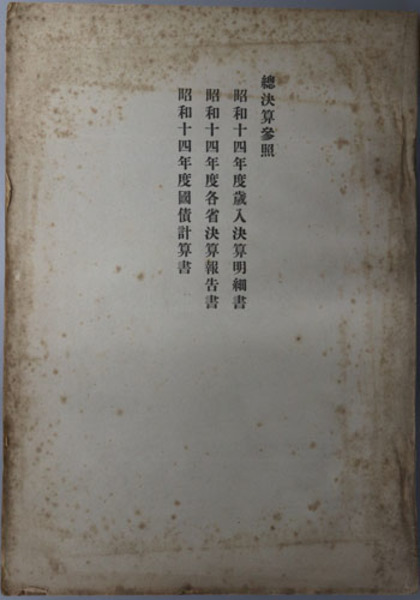 總決算參照
昭和十四年度歲入決算明細書
昭和十四年度各省決算報吿書
昭和十四年度國債計算書